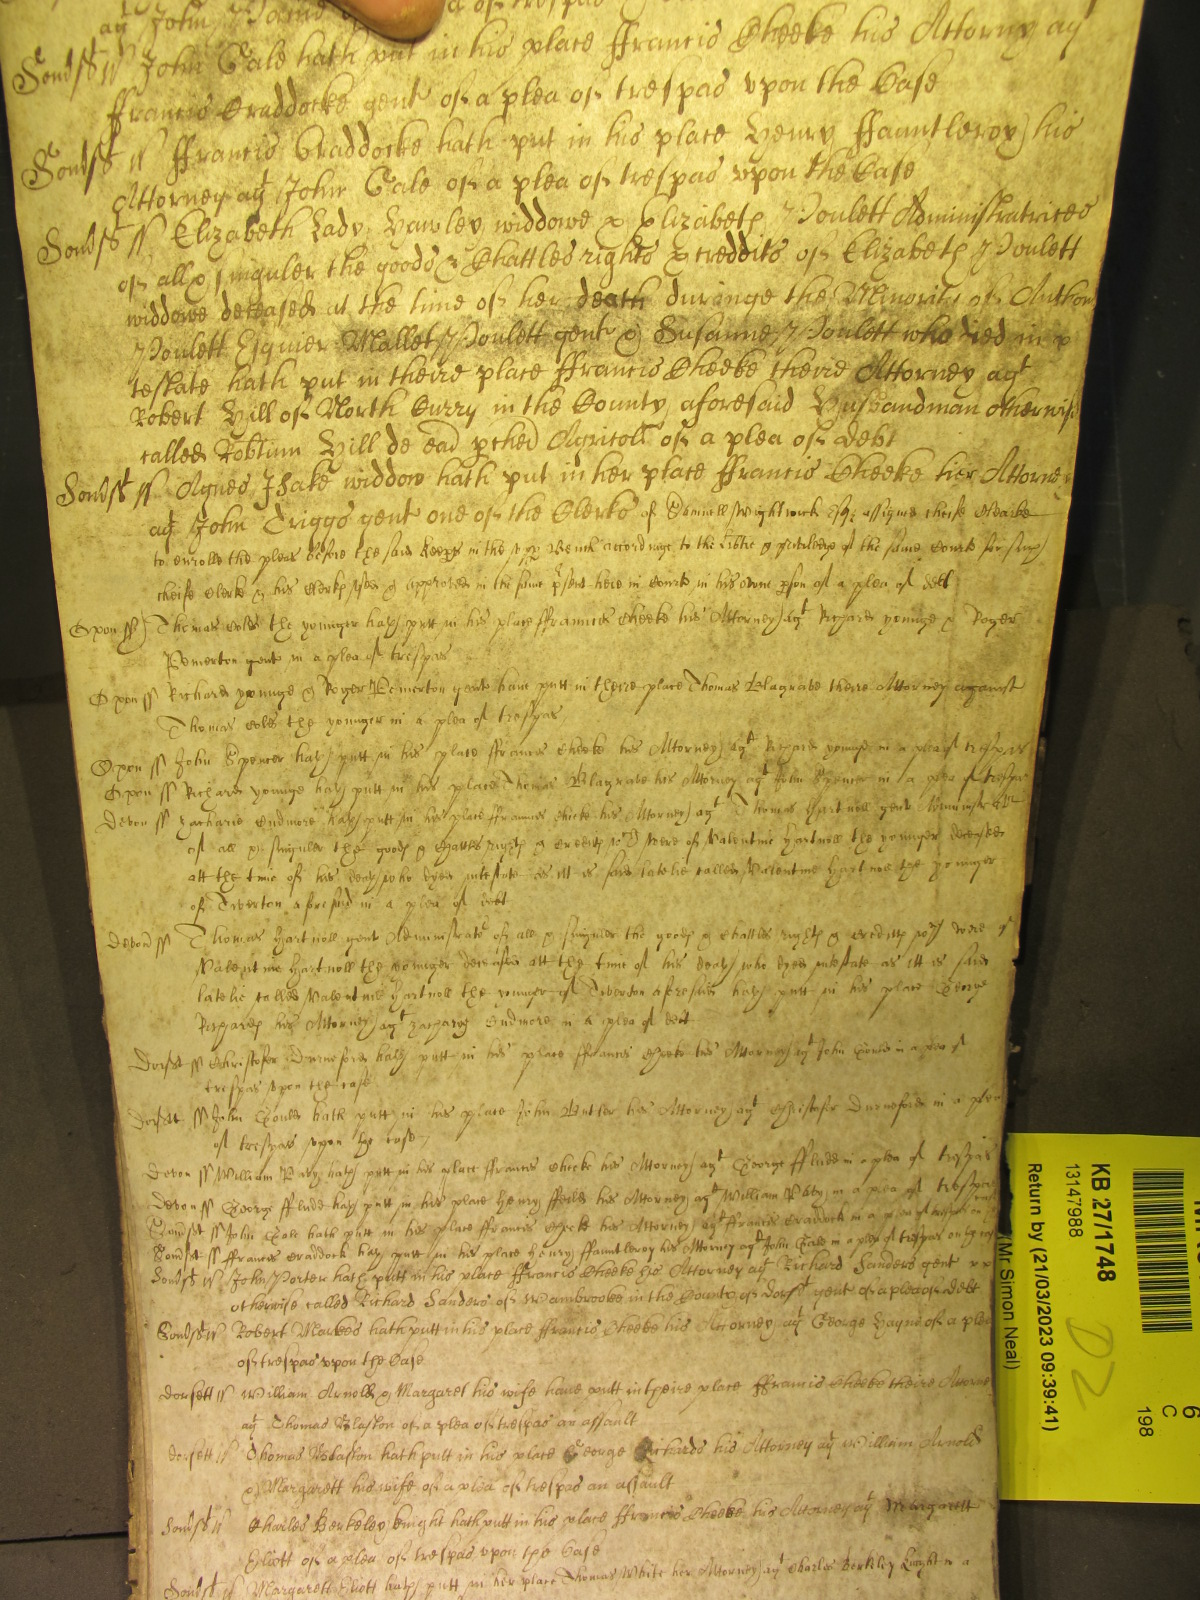 ag John of a plea of trespas
Somst ss John Cale hath put in his place ffrancis Cheeke his Attorny ag
ffrancis Craddocke gent of a plea of trespas vpon the Case
Somst ss ffrancis Craddocke hath put in his place Henry ffauntleroy his
Attorney agt John Cale of a plea of trespas vpon the Case
Somst ss Elizabeth Lady Hawley widdowe & Elizabeth Poulett Administratrices
of all & singuler the goods & Chattles rights & creddits of Elizabeth Poulett
widdowe deceased at the time of her death duringe the Minority of Anthony
Poulett Esquier Mallet Poulett gent & Susanne Poulett who died in
testate hath put in theire place ffrancis Cheeke theire Attorney agt
Robert Hill of North Curry in the County aforesaid Husbandman otherwise
called Robtum Hill de ead Agricoll of a plea of debt
Somst ss Agnes widdow hath put in her place ffrancis Cheeke her Attorney
agt John Triggs gent one of the Clerks of Samuell Wightwick Esqr assigned cheife Clearke
to enrolle the pleas before the said in the Bench accordinge to the & priviledges of the same Courte for such
cheife Clerke & his Clerks used & approved in the same psent here in Courte in his owne pson of a plea of debt
Oxon ss Thomas Coles the younger hath putt in his place ffrancis Cheeke his Attorney agt Richard younge & Roger
Pemerton gent in a plea of trespas
Oxon ss Richard younge & Roger Pemerton gent have putt in theire place Thomas Blagrave theire Attorney against
Thomas Coles the younger in a plea of trespas
Oxon ss John Spencer hath putt in his place ffrancis Cheeke his Attorney agt Richard younge in a plea of trespas
Oxon ss Richard younge hath putt in his place Thomas Blagrave his Attorney agt John Spencer in a plea of trespas
Devon ss Zacharie Cudmore hath putt in his place ffrancis Cheeke his Attorney agt Thomas Hartnoll gent Administrator
of all & singuler the goods & Chattles rights & Credits were of Valentine Hartnoll the younger deceased
att the time of his death who dyed intestate as itt is said latelie called Valentine Hartnoll the younger
of Tiverton aforesaid in a plea of debt
Devon ss Thomas Hartnoll gent Administrator of all & singuler the goods & Chattles rights & Creditts were of
Valentine Hartnoll the younger deceased att the time of his death who dyed intestate as itt is said
latelie called Valentine Hartnoll the younger of Tiverton aforesaid hath putt in his place George
Richards his Attorney agt Zachary Cudmore in a plea of debt
Dorset ss Christofer Durneford hath putt in his place ffrancis Cheeke his Attorney agt John Gould in a plea of
trespas vpon the case
Dorset ss John Gould hath putt in his place John Butler his Attorney agt Christofer Durneford in a plea
of trespas vpon the case
Devon ss William hath putt in his place ffrancis Cheeke his Attorney agt George ffludd in a plea of trespas
Devon ss George ffludd hath putt in his place Henry his Attorney agt William in a plea of trespas
Somset ss John Cole hath putt in his place ffrancis Cheeke his Attorney agt ffrancis Craddock in a plea of trespas on case
Somset ss ffrancis Craddock hath putt in his place Henry ffauntleroy his Attorney agt John Cale in a plea of trespas on the case
Somst ss John Porter hath putt in his place ffrancis Cheeke his Attorney agt Richard Sanders gent
otherwise called Richard Sanders of Wambrooke in the County of Dorst gent of a plea of debt
Somst ss Robert Markes hath putt in his place ffrancis Cheeke his Attorney agt George Hayne of a plea
of trespas vpon the Case
Dorsett ss William Arnold & Margaret his wife have putt in theire place ffrancis Cheeke theire Attorne
agt Thomas Blaston of a plea of trespas an assault
Dorsett ss Thomas Blaston hath putt in his place George Richards his Attorney agt William Arnold
& Margarett his wife of a plea of trespas an assault
Somst ss Charles Berkeley knight hath putt in his place ffrancis Cheeke his Attorney agt Margarett
Eliott of a plea of trespas vpon the Case
Somst ss Margarett Eliott hath putt in her place Thomas White her Attorney agt Charles Berkeley knight in a
KB 27/1748
13147988
Return by (21/03/2023 09:39:41)
(Mr Simon Neal)
D2
6
C
198